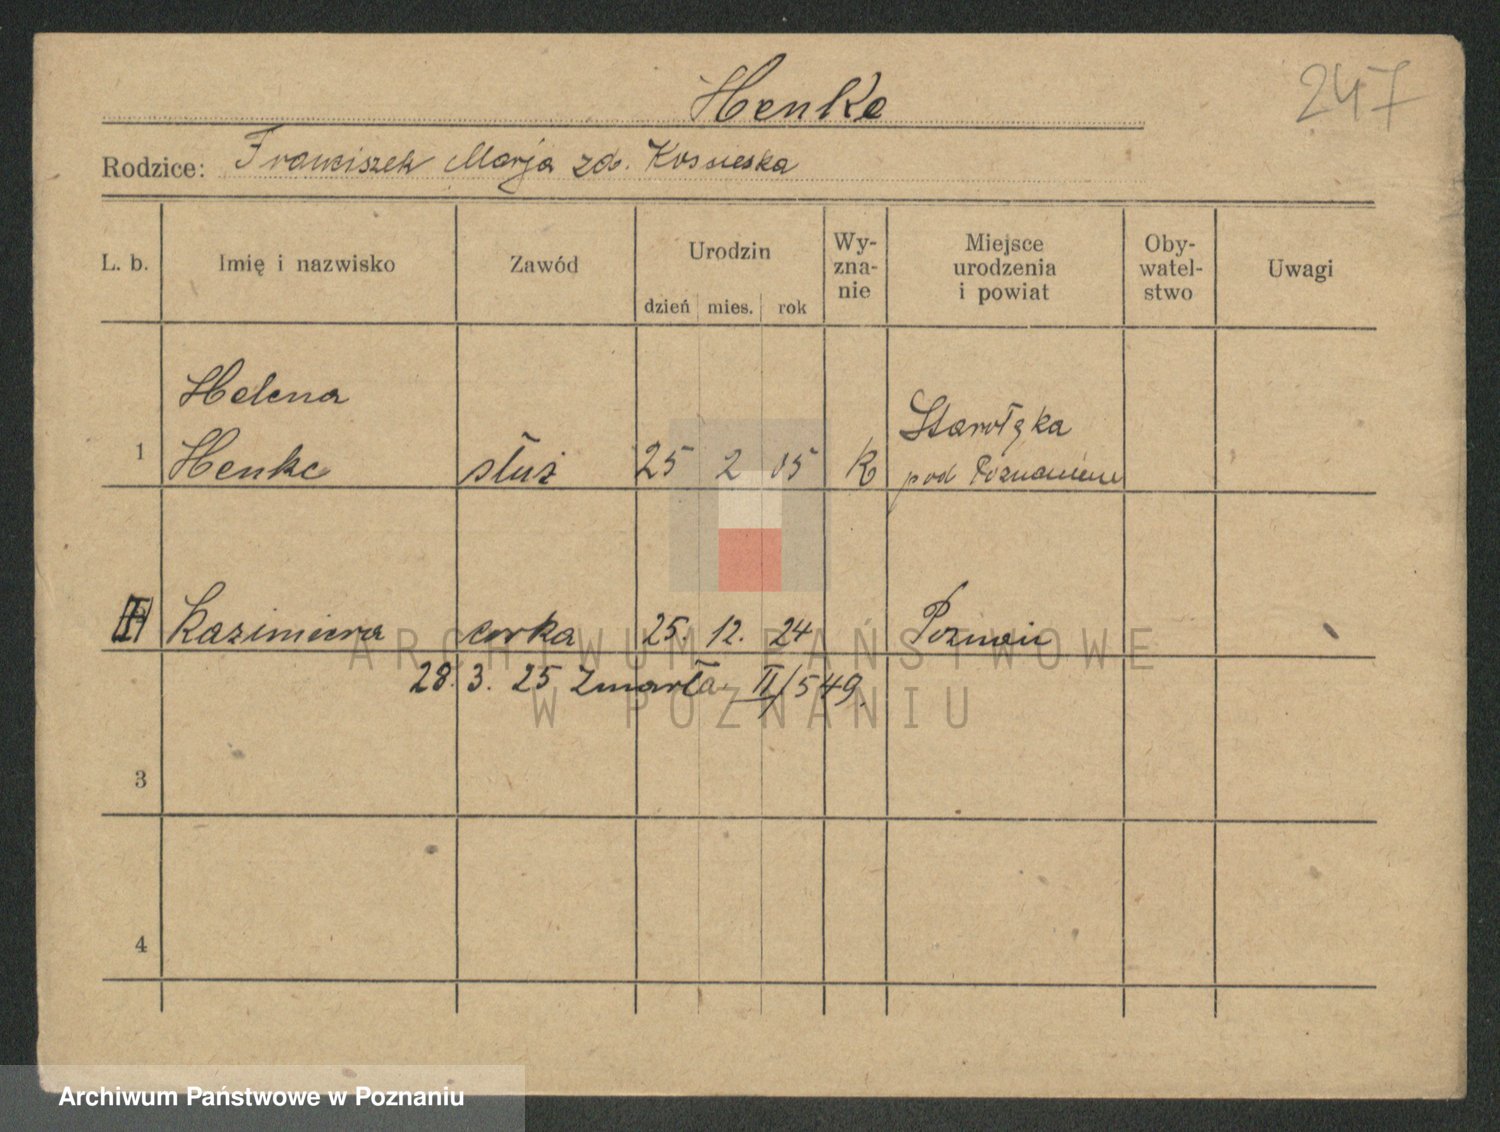 Henke
247
Rodzice: Franciszek Marja zd.
L. b. Imię i nazwisko Zawód Urodzin dzień mies. rok Wy-zna-nie Miejsce urodzenia i powiat Oby-watel-stwo Uwagi
Helena Starołęka
1 Henke służ 25 2 05 K pod Poznaniem
Kazimiera corka 25. 12. 24 Poznań
ARCHIWUM PAŃSTWOWE
28. 3. 25 Zmarła II/549.
W POZNANIU
3
4
Archiwum Państwowe w Poznaniu